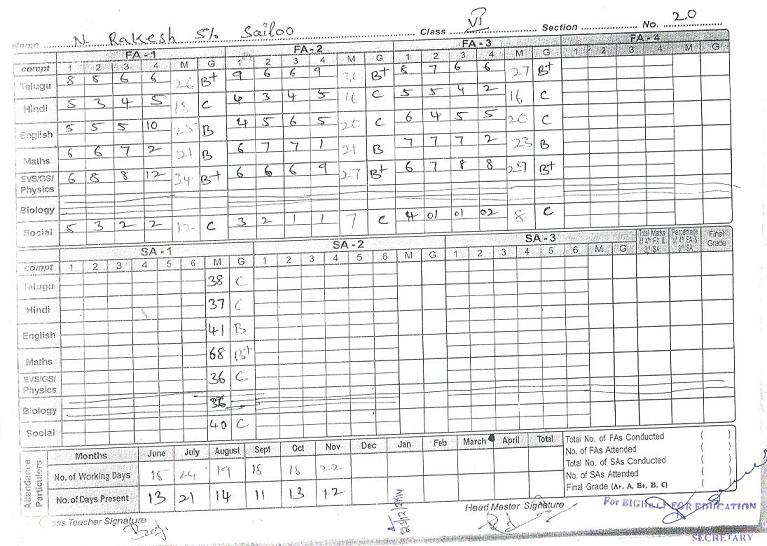 Name N. Rakesh S/o Sailoo Class VI Section No. 20
FA - 1 FA - 2 FA - 3 FA - 4
compt 1 2 3 4 M G 1 2 3 4 M G 1 2 3 4 M G 1 2 3 4 M G
Telugu 8 6 6 26 B+ 9 6 6 9 B+ 8 7 6 6 27 B+
Hindi 5 3 4 5 18 C 4 3 4 5 16 C 5 5 4 2 16 C
English 5 5 5 10 25 B 4 5 6 5 20 C 6 4 5 5 20 C
Maths 6 6 7 2 21 B 6 7 7 1 21 B 7 7 7 2 23 B
EVS/GS/ Physics 6 8 8 12 34 B+ 6 6 6 9 27 B+ 6 7 8 8 29 B+
Biology
Social 5 3 2 2 12 C 3 2 1 1 7 C 4 01 01 02 8 C
SA - 1 SA - 2 SA - 3 Total Marks of 4th FA & 3rd SA Percentage of 4th FA & 3rd SA Final Grade
compt 1 2 3 4 5 6 M G 1 2 3 4 5 6 M G 1 2 3 4 5 6 M G
Telugu 38 C
Hindi 37 C
English 41 B
Maths 68 B+
EVS/GS/ Physics 36 C
Biology 36
Social 40 C
Attendance Particulers
Months June July August Sept Oct Nov Dec Jan Feb March April Total
No. of Working Days 15 24 19 18 18 22
No. of Days Present 13 21 14 11 13 12
Total No. of FAs Conducted ( )
No. of FAs Attended ( )
Total No. of SAs Conducted ( )
No. of SAs Attended ( )
Final Grade (A+, A, B+, B, C) ( )
Class Teacher Signature Head Master Signature For BIGHELP FOR EDUCATION
SECRETARY